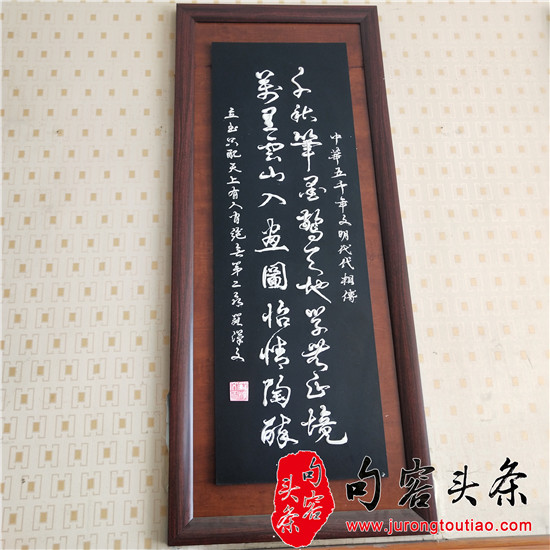 中華五千年文明代代相傳
千秋筆墨驚天地学無止境
萬里雲山入畫圖怡情陶醉
只配天上有人有第二
句容头条
句容头条
www.jurongtoutiao.com